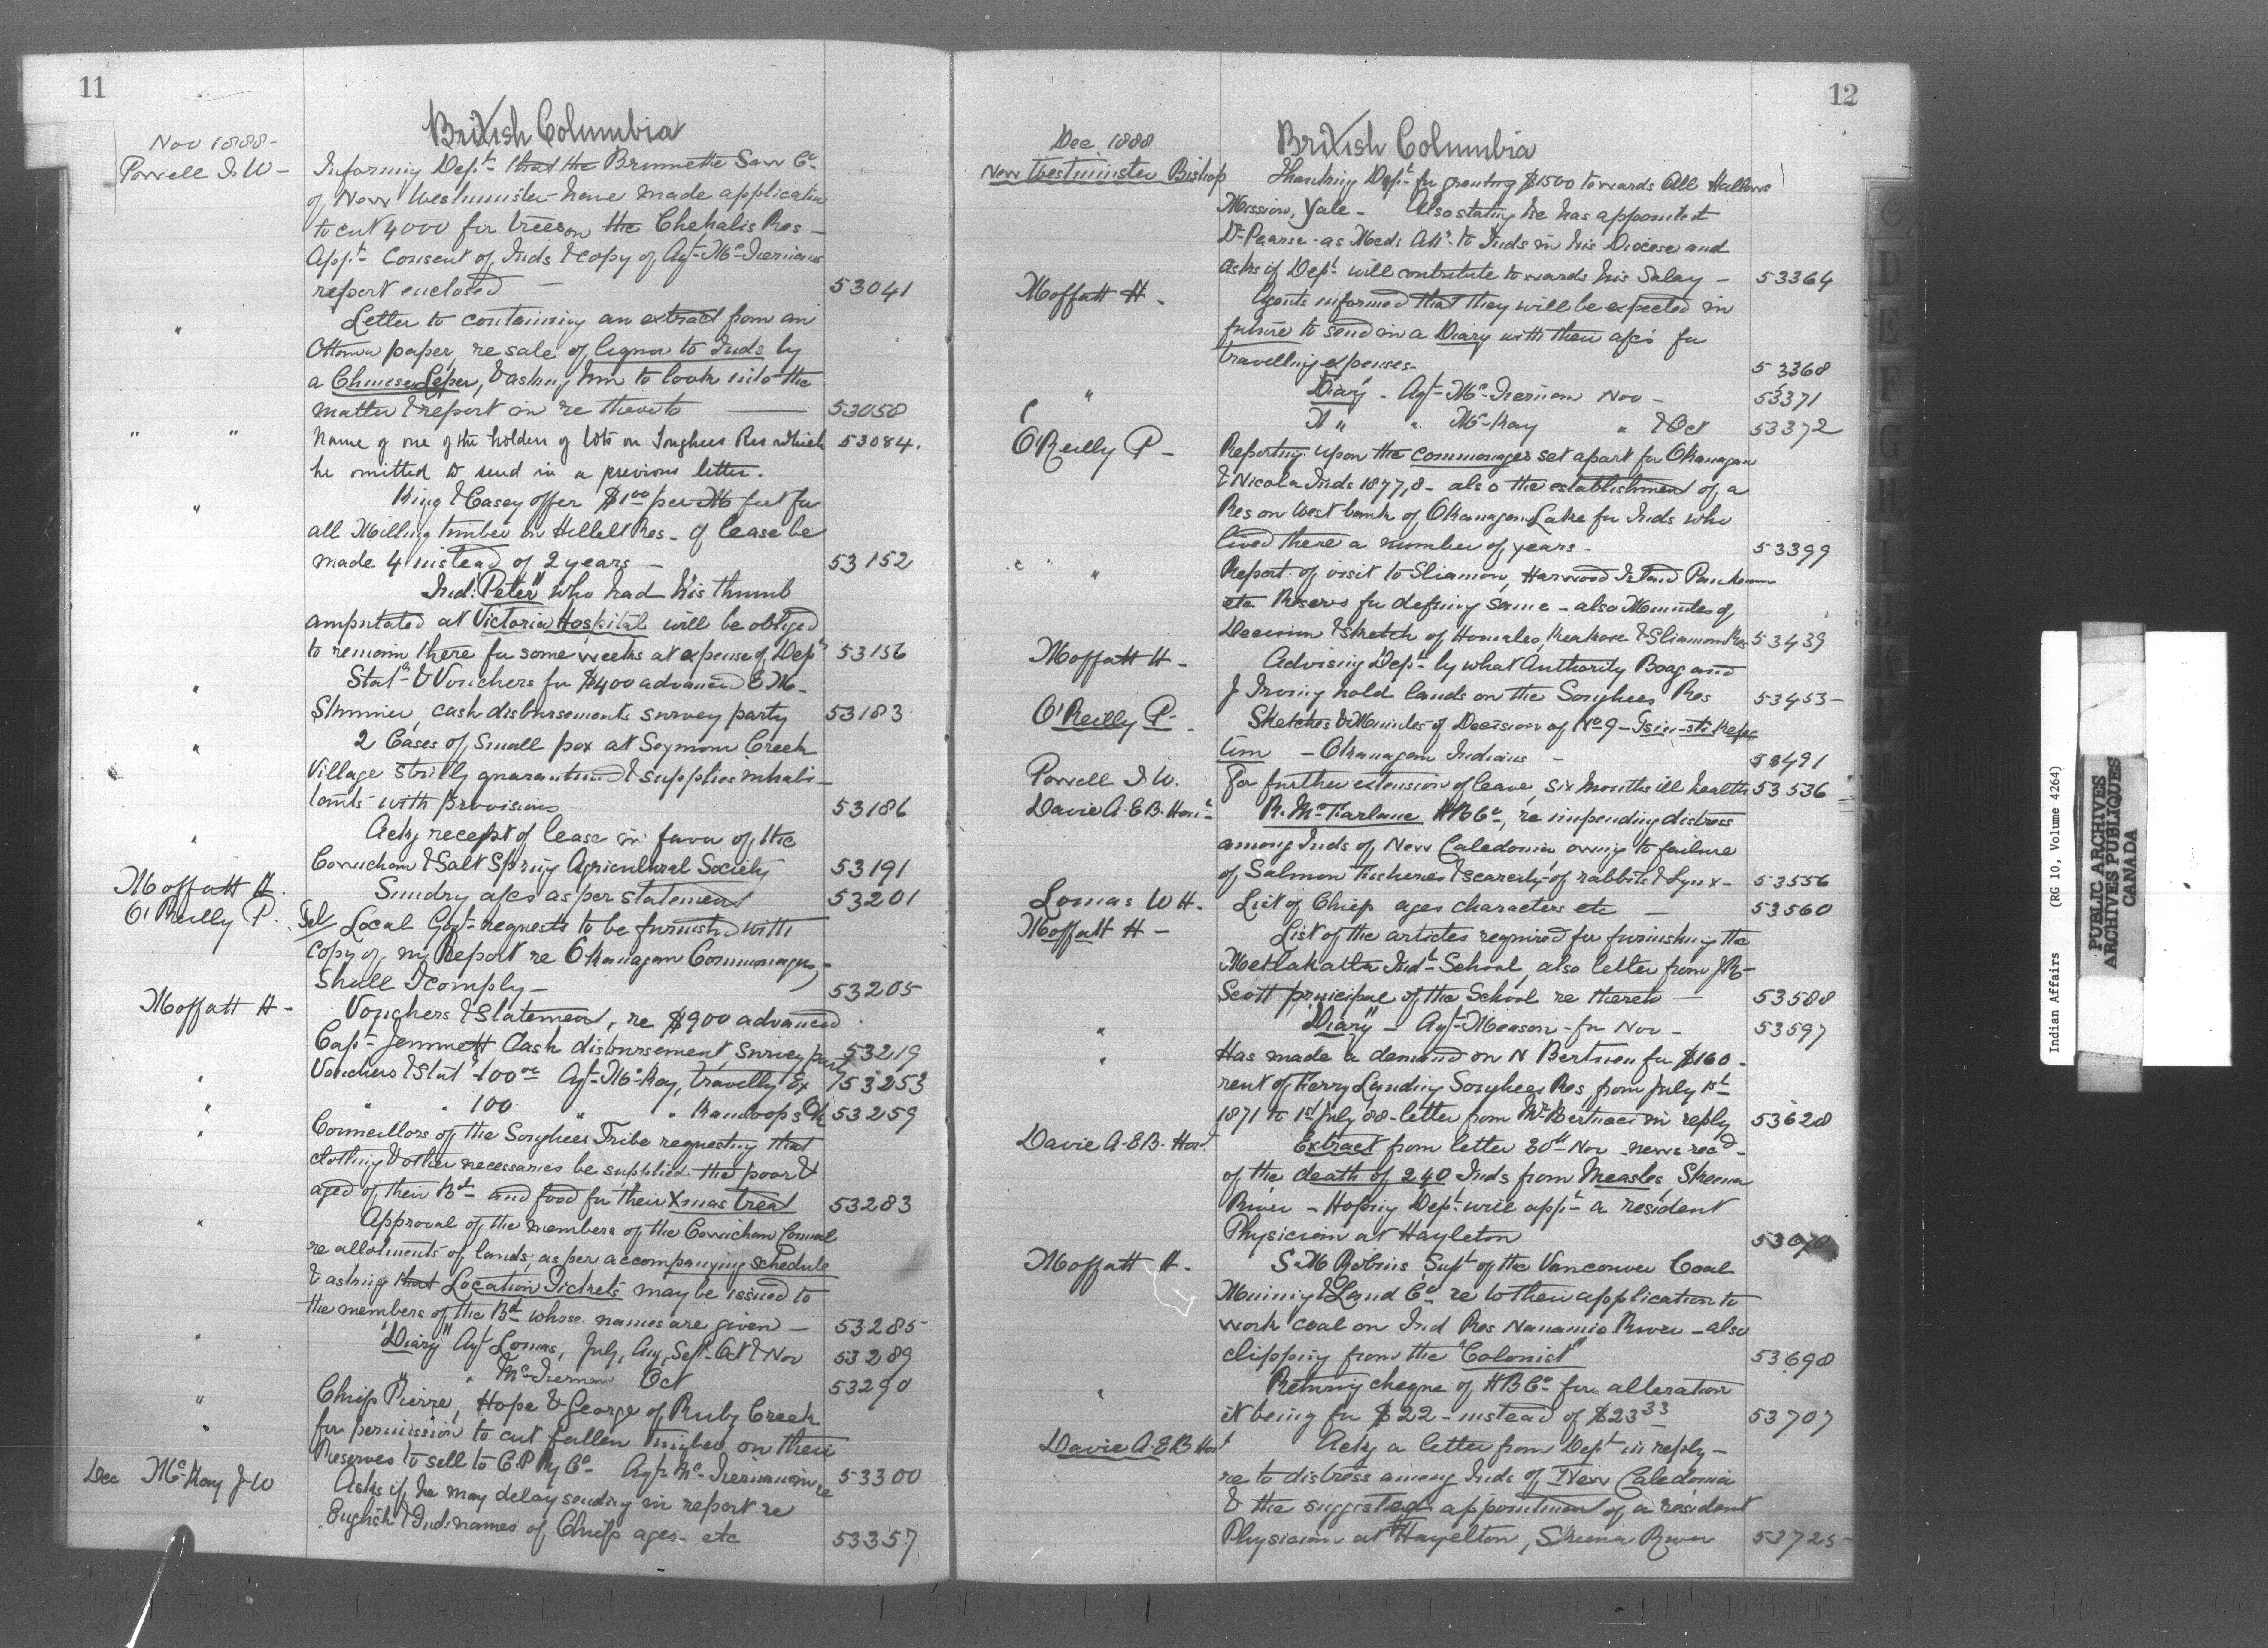 11
British Columbia
Nov 1888-
Powell I. W - Informing Dept that the Brunnette Saw Co
of New Westminster have made application
to cut 4000 fir trees on the Chehalis Res -
Appn Consent of Inds & copy of Agt McTiernans
report enclosed - 53041
" Letter to containing an extract from an
Ottawa paper, re sale of liquor to Inds by
a Chinese Leper, & asking him to look into the
matter & report in re thereto 53058
" " Name of one of the holders of lots on Songhees Res which 53084.
he omitted to send in a previous letter.
" King & Casey offer $1.00 per M feet for
all Milling timber on Res - If lease be
made 4 instead of 2 years - 53152
Ind: "Peter" who had his thumb
amputated at Victoria Hospital will be obliged
to remain there for some weeks at expense of Dept 53156
" Stat & Vouchers for $400 advanced E M-
Skinner, cash disbursements survey party 53183
" 2 Cases of Small pox at Seymour Creek
Village strictly quarantined & supplies inhabi-
tants with provisions 53186
" Ackg receipt of lease in favor of the
Cowichan & Salt Spring Agricultural Society 53191
Moffatt H. Sundry a/cs as per statement 53201
O'Reilly P. Tel Local Govt requests to be furnished with
copy of my Report re Okanagan Commonages,
Shall I comply - 53205
Moffatt H - Vouchers & Statement, re $900 advanced
Capt Jemmett Cash disbursement, survey party 53219
" Vouchers & Stat 100.00 Agt McKay, travellg Ex 53253
" " " 100 " " Kamloops 53259
" Councillors of the Songhees Tribe requesting that
clothing & other necessaries be supplied the poor &
aged of their Bd and food for their Xmas treat 53283
" Approval of the members of the Cowichan Council
re allotments of lands, as per accompanying Schedule
& asking that Location Tickets may be issued to
the members of the Bd whose names are given - 53285
" "Diary" Agt Lomas, July, Aug, Sept Oct & Nov 53289
" " " McTiernan Oct 53290
" Chief Pierre, Hope & George of Ruby Creek
for permission to cut fallen timber on their
Reserves to sell to C.P Ry Co - Agt McTiernan in re 53300
Dec McKay J W Asks if he may delay sending in report re
English & Ind names of Chiefs ages etc 53357
12
British Columbia
Dec 1888
New Westminster Bishop Thanking Dept for granting $1500 towards All Hallows
Mission, Yale - Also stating he has appointed
Dr Pearse as Med: Att to Inds in his Diocese and
asks if Dept will contribute towards his Salary - 53364
Moffatt H - Agents informed that they will be expected in
future to send in a Diary with their a/cs for
travelling expenses - 53368
" "Diary - Agt McTiernan Nov - 53371
" " McKay " & Oct 53372
O'Reilly P - Reporting upon the commonages set apart for Okanagan
& Nicola Inds 1877,8 - also the establishment of a
Res on West bank of Okanagan Lake for Inds who
lived there a number of years - 53399
" Report of visit to Sliamon, Harwood Island
etc Reserves for defining same - also Minutes of
Decision & sketch of Homalco, & Sliammon Res 53439
Moffatt H - Advising Dept by what Authority Boag and
J Irving hold lands on the Songhees Res 53453-
O'Reilly P - Sketches & Minutes of Decision of No 9 -
tim - Okanagan Indians - 53491
Powell I. W. For further extension of leave, six months ill health 53536
Davie A.E.B. Hon R. McFarlane HBCo, re impending distress
among Inds of New Caledonia owing to failure
of Salmon Fisheries & scarcity of rabbits & Lynx - 53556
Lomas W H. List of Chiefs ages characters etc - 53560
Moffatt H - List of the articles required for furnishing the
Metlakatla Indl School, also letter from J R
Scott principal of the School re thereto - 53588
" "Diary" - Agt Meason - for Nov - 53597
" Has made a demand on N Bertucci for $160 -
rent of Ferry Landing Songhees Res, from July 1st
1871 to 1st July 88 - letter from Mr Bertucci in reply 53628
Davie A.E.B. Hon Extract from letter 30th Nov - news recd -
of the death of 240 Inds from Measles, Skeena
River - Hoping Dept will appt a resident
Physician at Hazleton
Moffatt H - S. M Robins Supt of the Vancouver Coal
Mining & Land Co re to their application to
work coal on Ind Res Nanaimo River - also
clipping from the "Colonist" 53698
" Returng cheque of HBCo for alteration
it being for $22 - instead of $23.33 53707
Davie A.E.B Hon Ackg a letter from Dept in reply -
re to distress among Inds of New Caledonia
& the suggested appointment of a resident
Physician at Hazelton, Skeena River 53725-
Indian Affairs (RG 10, Volume 4264)
PUBLIC ARCHIVES
ARCHIVES PUBLIQUES
CANADA